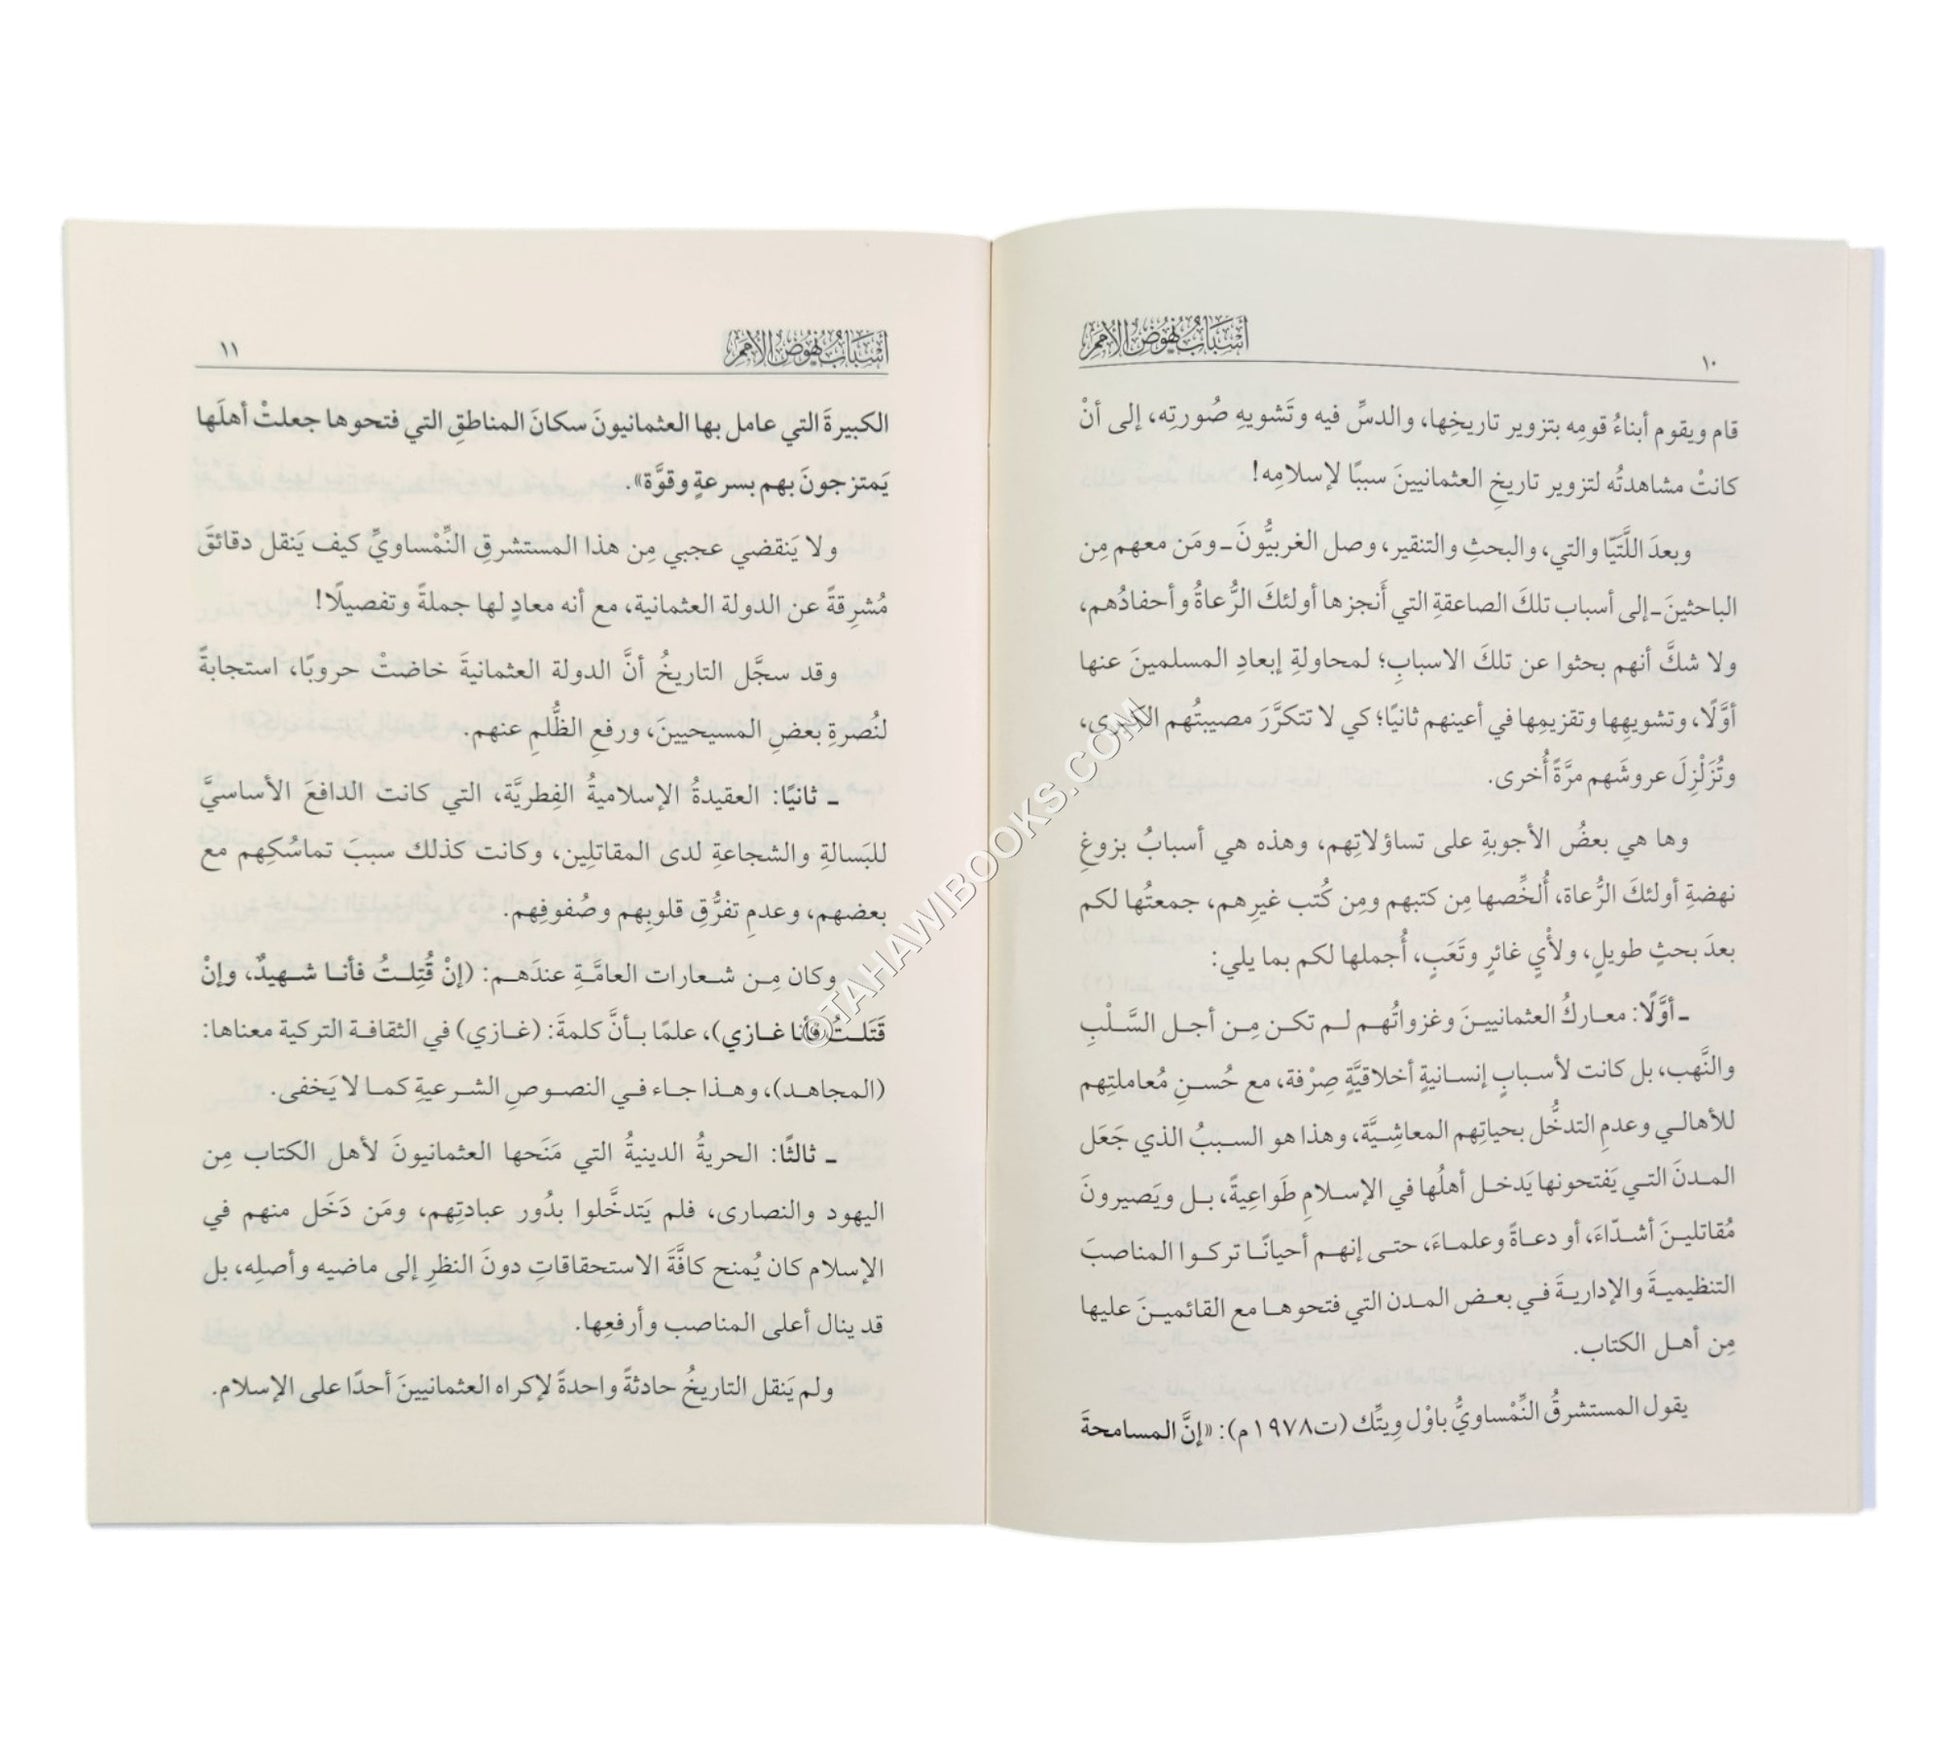 أسباب نهوض الأمم
١٠
قام ويقوم أبناءُ قومِه بتزوير تاريخِها، والدسِّ فيه وتَشويهِ صُورتِه، إلى أنْ
كانتْ مشاهدتُه لتزوير تاريخِ العثمانيينَ سببًا لإسلامِه!
وبعدَ اللَّتيّا والتي، والبحثِ والتنقير، وصل الغربيُّونَ ـ ومَن معهم مِن
الباحثينَ ـ إلى أسباب تلكَ الصاعقةِ التي أَنجزها أولئكَ الرُّعاةُ وأحفادُهم،
ولا شكَّ أنهم بحثوا عن تلكَ الاسبابِ؛ لمحاولةِ إبعادِ المسلمينَ عنها
أوَّلًا، وتشويهِها وتقزيمِها في أعينهم ثانيًا؛ كي لا تتكرَّرَ مصيبتُهم الكبرى،
وتُزَلْزِلَ عروشَهم مرَّةً أُخرى.
وها هي بعضُ الأجوبةِ على تساؤلاتِهم، وهذه هي أسبابُ بزوغِ
نهضةِ أولئكَ الرُّعاة، أُلخِّصها مِن كتبهم ومِن كُتب غيرِهم، جمعتُها لكم
بعدَ بحثٍ طويلٍ، ولأْيٍ غائرٍ وتَعَبٍ، أُجملها لكم بما يلي:
ـ أوَّلًا: معاركُ العثمانيينَ وغزواتُهم لم تكن مِن أجل السَّلْبِ
والنَّهب، بل كانت لأسبابٍ إنسانيةٍ أخلاقيَّةٍ صِرْفة، مع حُسنِ مُعاملتِهم
للأهالي وعدمِ التدخُّل بحياتِهم المعاشِيَّة، وهذا هو السببُ الذي جَعَل
المدنَ التي يَفتحونها يَدخل أهلُها في الإسلامِ طَواعِيةً، بل ويَصيرونَ
مُقاتلينَ أشدّاءَ، أو دعاةً وعلماءَ، حتى إنهم أحيانًا تركوا المناصبَ
التنظيميةَ والإداريةَ في بعض المدن التي فتحوها مع القائمينَ عليها
مِن أهل الكتاب.
يقول المستشرقُ النِّمْساويُّ باوْل ويتِّك (ت١٩٧٨م): «إنَّ المسامحةَ
أسباب نهوض الأمم
١١
الكبيرةَ التي عامل بها العثمانيونَ سكانَ المناطقِ التي فتحوها جعلتْ أهلَها
يَمتزجونَ بهم بسرعةٍ وقوَّة».
ولا يَنقضي عجبي مِن هذا المستشرقِ النِّمْساويِّ كيف يَنقل دقائقَ
مُشرِقةً عن الدولة العثمانية، مع أنه معادٍ لها جملةً وتفصيلًا!
وقد سجَّل التاريخُ أنَّ الدولة العثمانيةَ خاضتْ حروبًا، استجابةً
لنُصرةِ بعضِ المسيحيينَ، ورفعِ الظُّلمِ عنهم.
ـ ثانيًا: العقيدةُ الإسلاميةُ الفِطريَّة، التي كانت الدافعَ الأساسيَّ
للبَسالةِ والشجاعةِ لدى المقاتلِين، وكانت كذلك سببَ تماسُكِهم مع
بعضهم، وعدمِ تفرُّقِ قلوبِهم وصُفوفِهم.
وكان مِن شعارات العامَّةِ عندَهم: (إنْ قُتِلتُ فأنا شهيدٌ، وإنْ
قَتَلتُ فأنا غازي)، علمًا بأنَّ كلمةَ: (غازي) في الثقافة التركية معناها:
(المجاهد)، وهذا جاء في النصوصِ الشرعيةِ كما لا يَخفى.
ـ ثالثًا: الحريةُ الدينيةُ التي مَنَحها العثمانيونَ لأهل الكتاب مِن
اليهود والنصارى، فلم يَتدخَّلوا بدُور عبادتِهم، ومَن دَخَل منهم في
الإسلام كان يُمنح كافَّةَ الاستحقاقاتِ دونَ النظرِ إلى ماضيه وأصلِه، بل
قد ينال أعلى المناصب وأرفعِها.
ولم يَنقل التاريخُ حادثةً واحدةً لإكراه العثمانيينَ أحدًا على الإسلام.
©TAHAWIBOOKS.COM